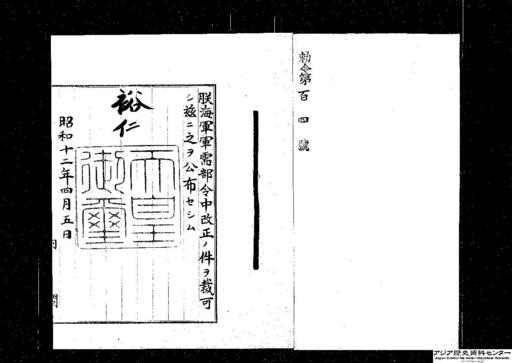 勅令第百四號
朕海軍軍需部令中改正ノ件ヲ裁可
シ茲ニ之ヲ公布セシム
裕仁
天皇御璽
昭和十二年四月五日
アジア歴史資料センター
Japan Center for Asian Historical Records